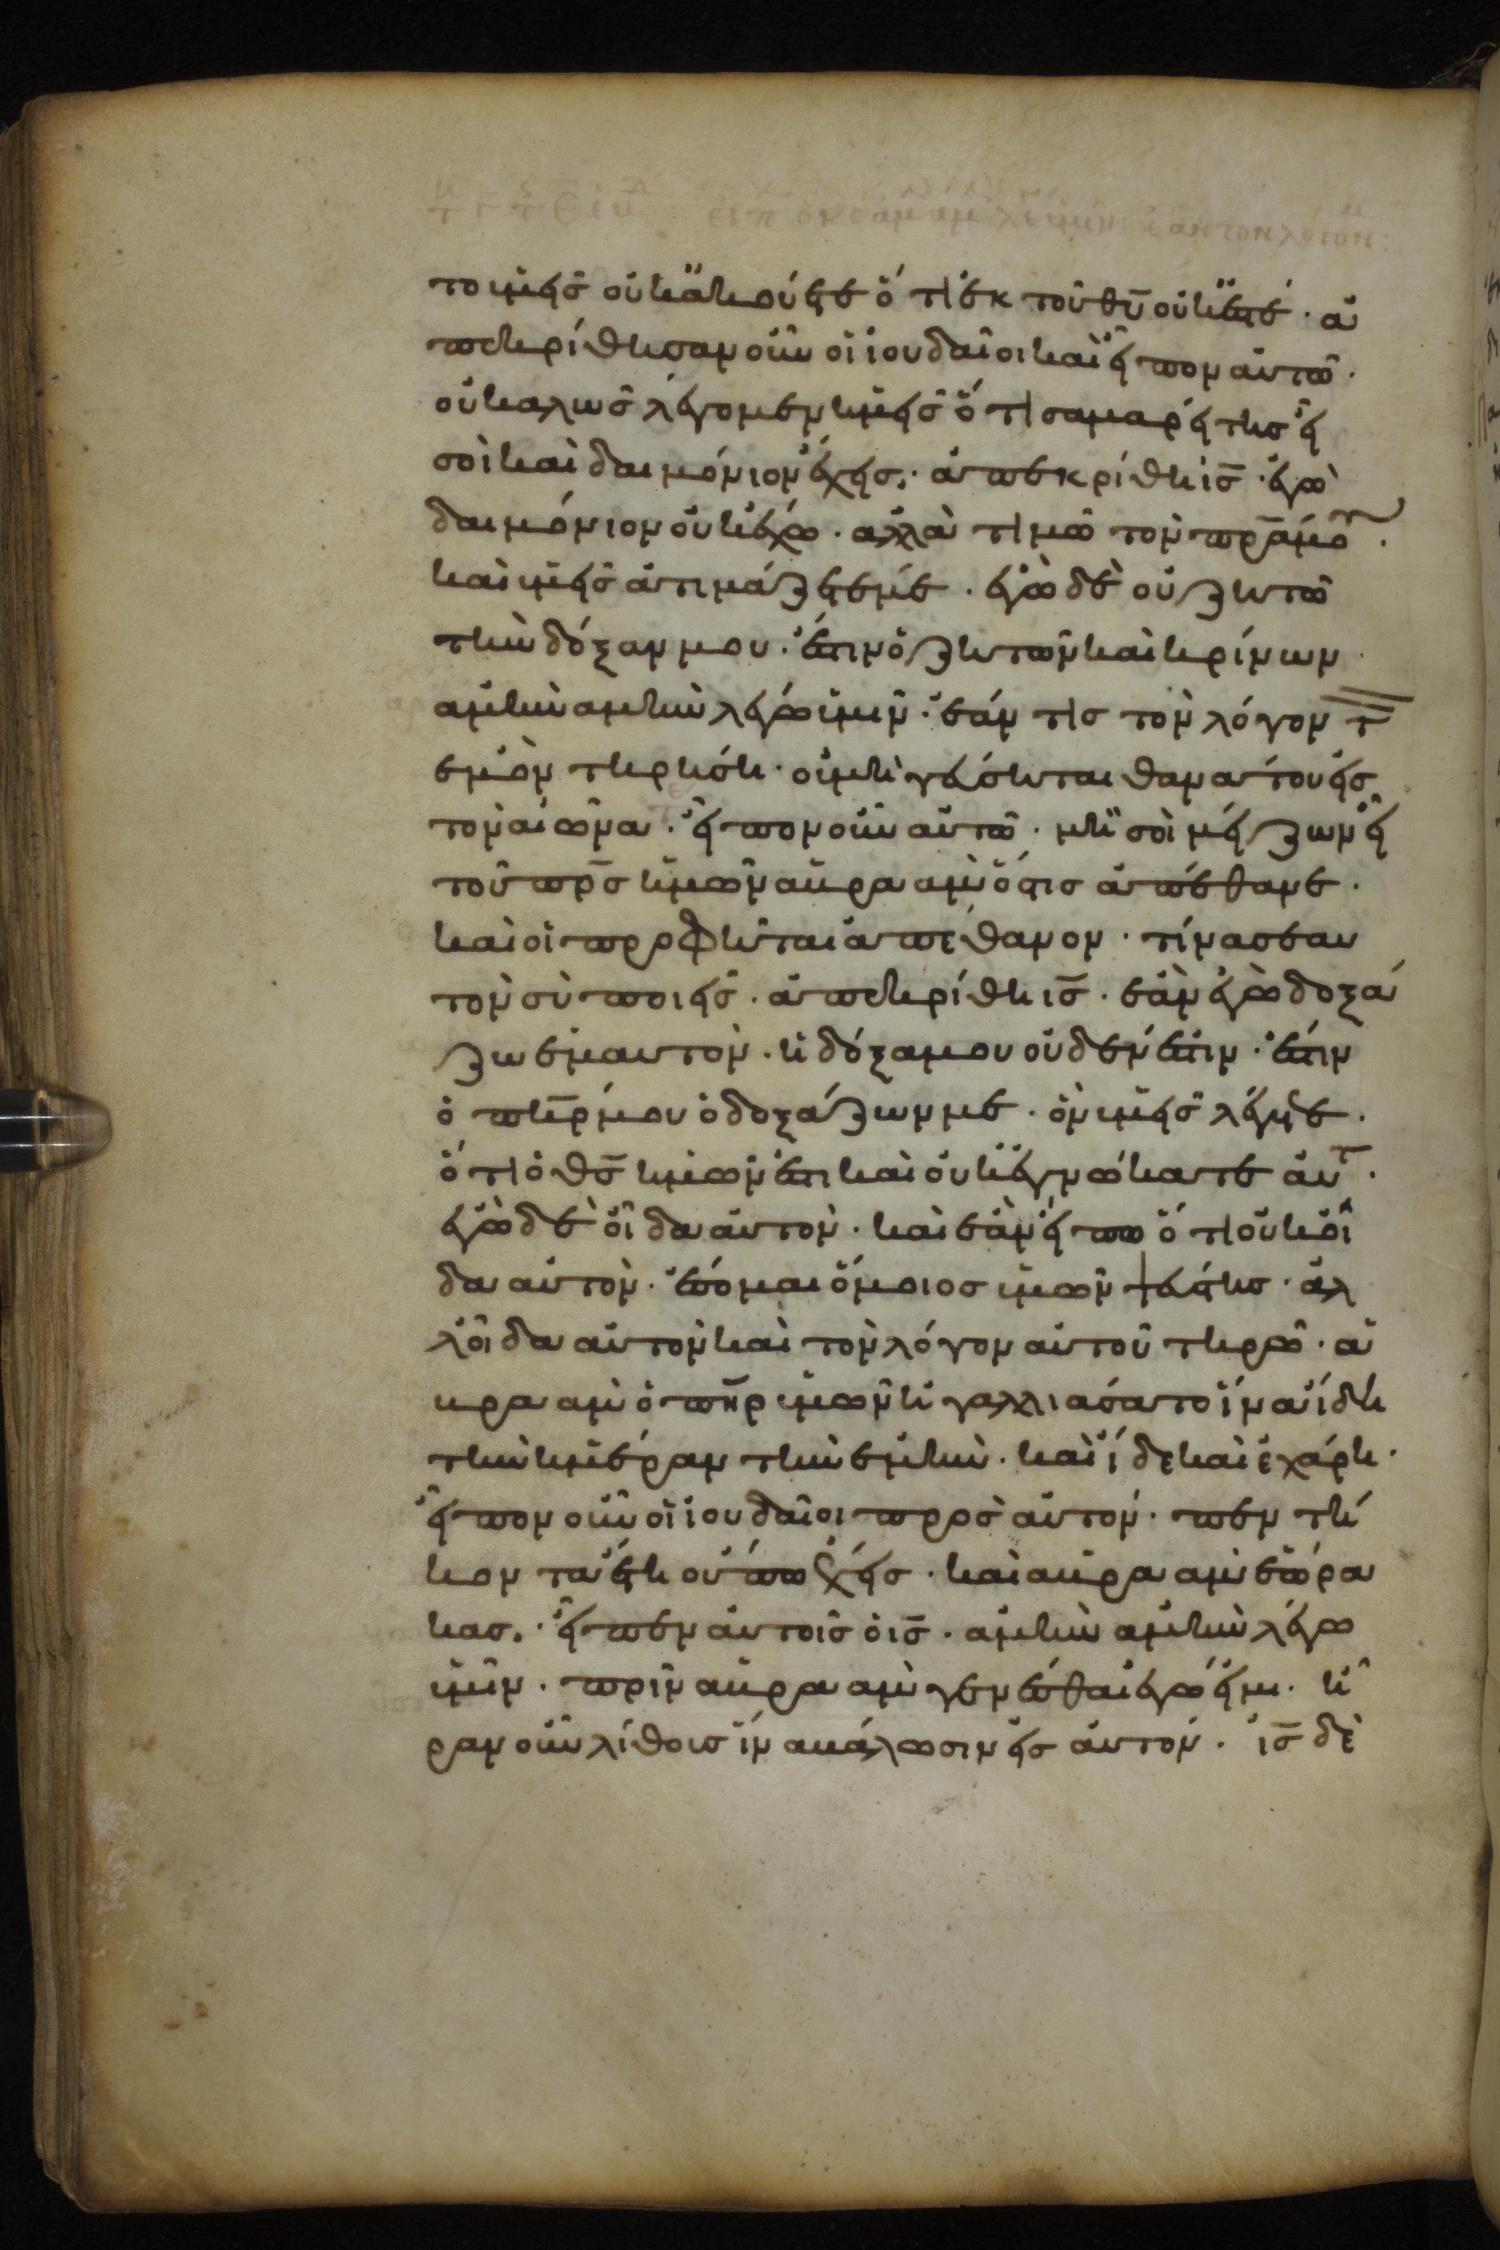 το ὑμεῖς οὐκ ἀκούετε ὅτι ἐκ τοῦ θ̅υ̅ οὐκ ἐστέ · ἀ
πεκρίθησαν οὖν οἱ ἰουδαῖοι καὶ εἶπον αὐτῶ ·
οὐ καλῶς λέγομεν ἡμεῖς ὅτι σαμαρείτης εἶ
σοὶ καὶ δαιμόνιον ἔχεις · ἀπεκρίθη ι̅ς̅ · ἐγὼ
δαιμόνιον οὐκ ἔχω · ἀλλὰ τιμῶ τὸν π̅ρ̅α̅ μου ·
καὶ ὑμεῖς ἀτιμάζετέ με · ἐγὼ δὲ οὐ ζητῶ
τὴν δόξαν μου · ἔστιν ὁ ζητῶν καὶ κρίνων
ἀμὴν ἀμὴν λέγω ὑμῖν · ἐάν τις τὸν λόγον τ̅
ἐμὸν τηρήση · οὐ μὴ γεύσηται θανάτου εἰς
τὸν αἰῶνα · εἶπον οὖν αὐτῶ · μὴ σοὶ μείζων εἶ
τοῦ π̅ρ̅ς̅ ἡμῶν ἀβρααμ ὅστις ἀπέθανε ·
καὶ οἱ προφῆται ἀπέθανον · τίνα σεαυ
τὸν σὺ ποιεῖς · ἀπεκρίθη ι̅ς̅ · ἐὰν ἐγὼ δοξά
ζω ἐμαυτὸν · ἡ δόξα μου οὐδέν ἐστιν · ἔστιν
ὁ π̅η̅ρ̅ μου ὁ δοξάζων με · ὃν ὑμεῖς λέγετε ·
ὅτι ὁ θ̅ς̅ ἡμῶν ἐστι καὶ οὐκ ἐγνώκατε αὐτ ·
ἐγὼ δὲ οἶδα αὐτὸν · καὶ ἐὰν εἴπω ὅτι οὐκ οἶ
δα αὐτὸν · ἔσομαι ὅμοιος ὑμῶν ψεύστης · ἀλ
λ οἶδα αὐτὸν καὶ τὸν λόγον αὐτοῦ τηρῶ · ἀ
βρααμ ὁ π̅η̅ρ̅ ὑμῶν ἠγαλλιάσατο ἵνα ἴδη
τὴν ἡμέραν τὴν ἐμὴν · καὶ ἴδε καὶ ἐχάρη ·
εἶπον οὖν οἱ ἰουδαῖοι πρὸς αὐτόν · πεντή
κοντα ἔτη οὔπω ἔχεις · καὶ ἀβρααμ ἑώρα
κας · εἶπεν αὐτοῖς ὁ ι̅ς̅ · ἀμὴν ἀμὴν λέγω
ὑμῖν · πρὶν ἀβρααμ γενέσθαι ἐγώ εἰμι · ἦ
ραν οὖν λίθους ἵνα βάλωσιν εἰς αὐτόν · ι̅ς̅ δὲ